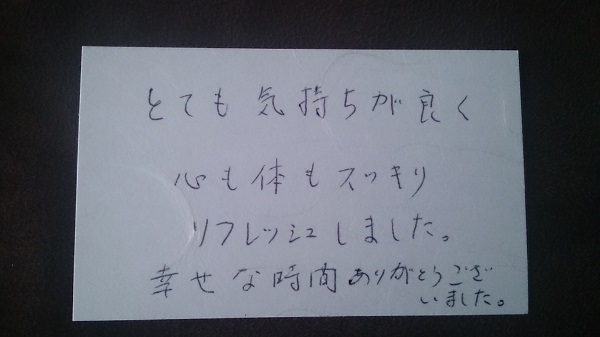 とても気持ちが良く
心も体もスッキリ
リフレッシュしました。
幸せな時間ありがとうござ
いました。